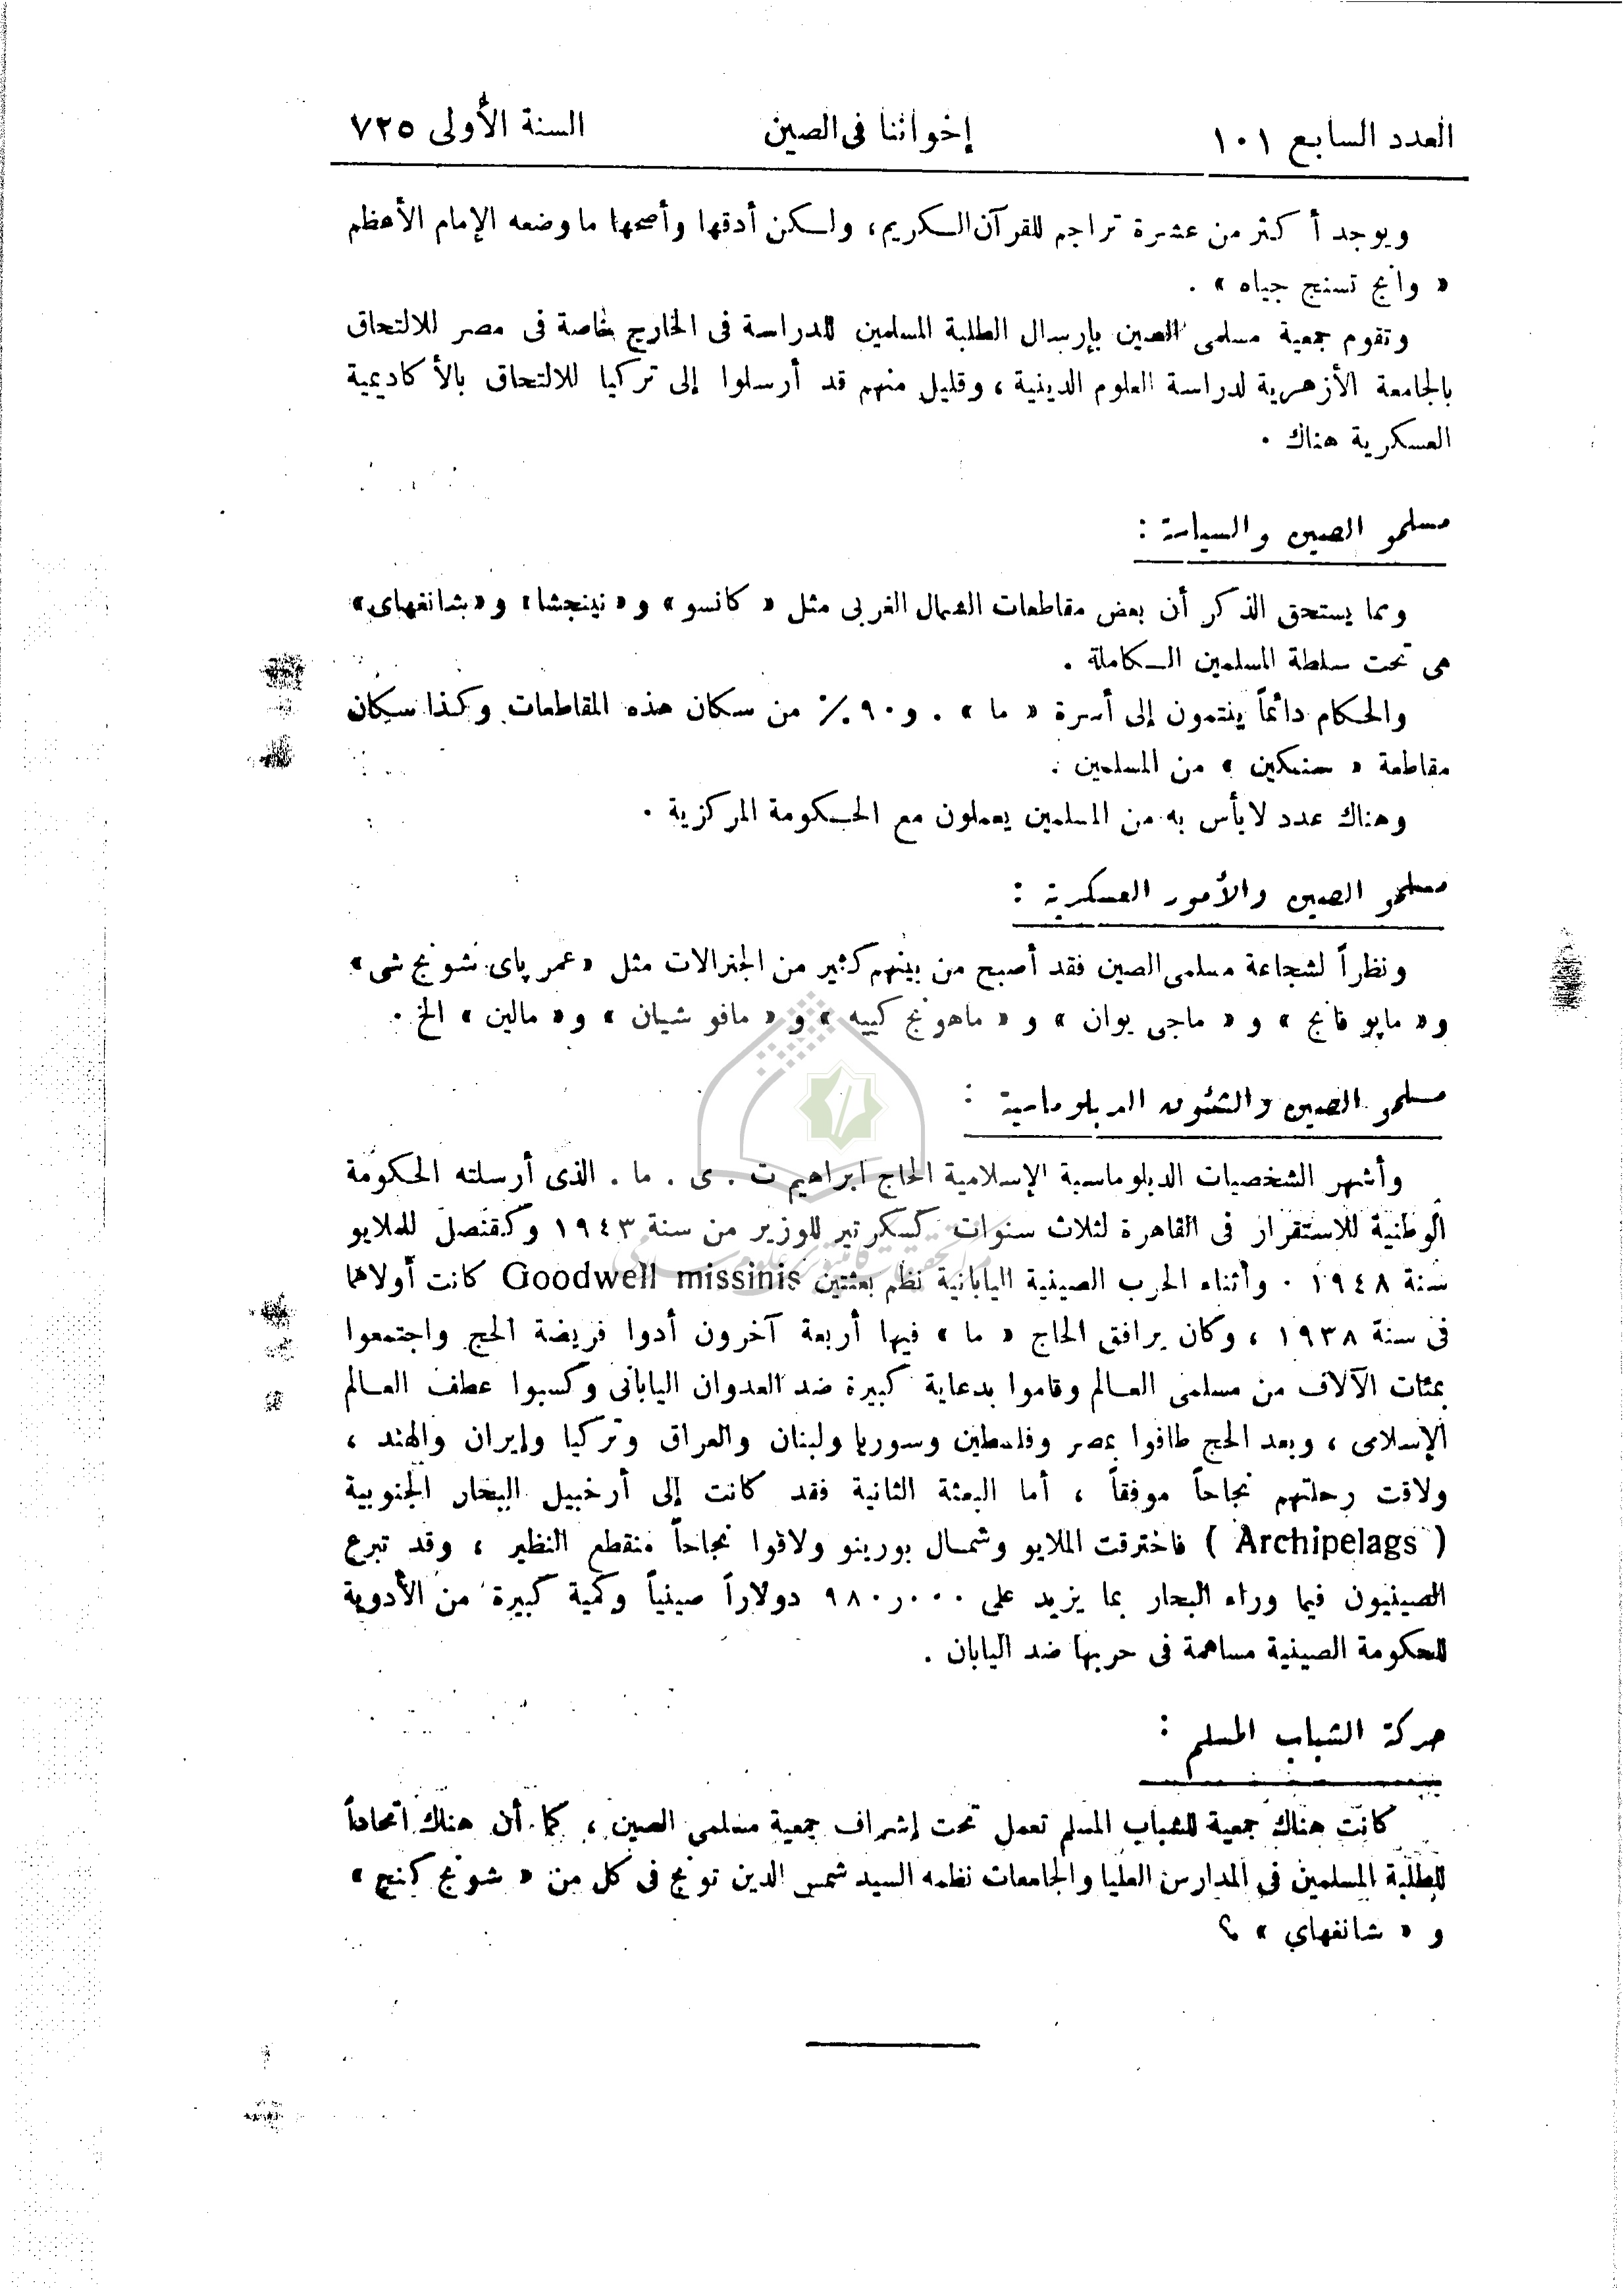 العدد السابع ١٠١ إخواننا فى الصين السنة الأولى ٧٢٥
ويوجد أكثر من عشرة تراجم للقرآن الكريم، ولكن أدقها وأصحها ما وضعه الإمام الأعظم
« وانج تسنج جياه » .
وتقوم جمعية مسلمى الصين بإرسال الطلبة المسلمين للدراسة فى الخارج خاصة فى مصر للالتحاق
بالجامعة الأزهرية لدراسة العلوم الدينية ، وقليل منهم قد أرسلوا إلى تركيا للالتحاق بالأكاديمية
العسكرية هناك .
مسلمو الصين والسياسة :
ومما يستحق الذكر أن بعض مقاطعات الشمال الغربى مثل « كانسو » و« نينجشا» و«شانغهاى»
هى تحت سلطة المسلمين الكاملة .
والحكام دائماً ينتمون إلى أسرة « ما » . و ٩٠ ٪ من سكان هذه المقاطعات وكذا سكان
مقاطعة « سنكين » من المسلمين .
وهناك عدد لا بأس به من المسلمين يعملون مع الحكومة المركزية .
مسلمو الصين والأمور العسكرية :
ونظراً لشجاعة مسلمى الصين فقد أصبح من بينهم كثير من الجنرالات مثل «عمر پاى شونج شى»
و« ماپو فانج » و « ماجى يوان » و « ماهونج كييه » و « مافو شيان » و« مالين » الخ .
مسلمو الصين والشئون الدبلوماسية :
وأشهر الشخصيات الدبلوماسية الإسلامية الحاج ابراهيم ت . ى . ما . الذى أرسلته الحكومة
الوطنية للاستقرار فى القاهرة لثلاث سنوات كسكرتير للوزير من سنة ١٩٤٣ وكقنصل للملايو
سنة ١٩٤٨ . وأثناء الحرب الصينية اليابانية نظم بعثتين Goodwell missinis كانت أولاهما
فى سنة ١٩٣٨ ، وكان يرافق الحاج « ما » فيها أربعة آخرون أدوا فريضة الحج واجتمعوا
بمئات الآلاف من مسلمى العالم وقاموا بدعاية كبيرة ضد العدوان اليابانى وكسبوا عطف العالم
الإسلامى ، وبعد الحج طافوا بمصر وفلسطين وسوريا ولبنان والعراق وتركيا وإيران والهند ،
ولاقت رحلتهم نجاحاً موفقاً ، أما البعثة الثانية فقد كانت إلى أرخبيل البحار الجنوبية
( Archipelags ) فاخترقت الملايو وشمال بورينو ولاقوا نجاحاً منقطع النظير ، وقد تبرع
الصينيون فيما وراء البحار بما يزيد على ٩٨٠ر٠٠٠ دولاراً صينياً وكمية كبيرة من الأدوية
للحكومة الصينية مساهمة فى حربها ضد اليابان .
حركة الشباب المسلم :
كانت هناك جمعية للشباب المسلم تعمل تحت إشراف جمعية مسلمى الصين ، كما أن هناك اتحاداً
للطلبة المسلمين فى المدارس العليا والجامعات نظمه السيد شمس الدين تونج فى كل من « شونج كنج »
و « شانغهاي » ؟